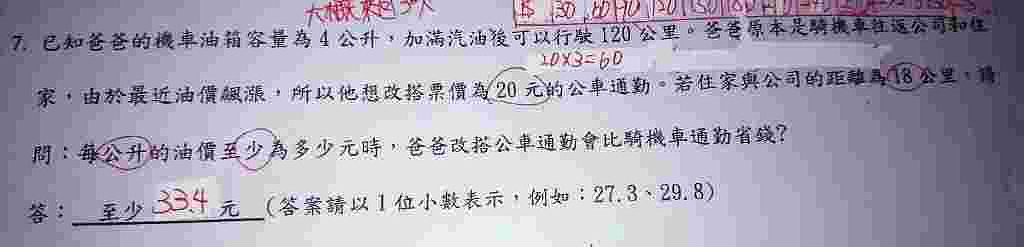 大概超3人
7. 已知爸爸的機車油箱容量為4公升，加滿汽油後可以行駛120公里。爸爸原本是騎機車往返公司和住
20×3=60
家，由於最近油價飆漲，所以他想改搭票價為20元的公車通勤。若住家與公司的距離為18公里，請
問：每公升的油價至少為多少元時，爸爸改搭公車通勤會比騎機車通勤省錢?
答： 至少 33.4 元 (答案請以1位小數表示，例如：27.3、29.8)